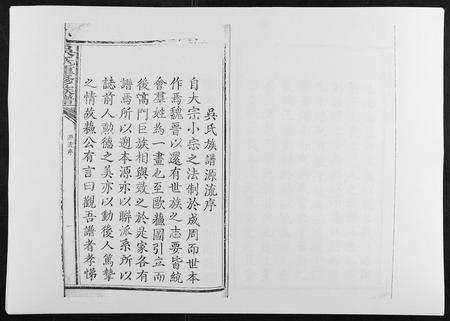 吳氏族譜源流序
自大宗小宗之法制於成周而世本
作焉魏晉以還有世族之志要皆統
會羣姓為一書也至歐蘇圖引立而
後高門巨族相與效之於是家各有
譜焉所以遡本源亦以聯派系所以
誌前人勲德之美亦以動後人篤摯
之情故蘇公有言曰觀吾譜者孝悌
源流序
一